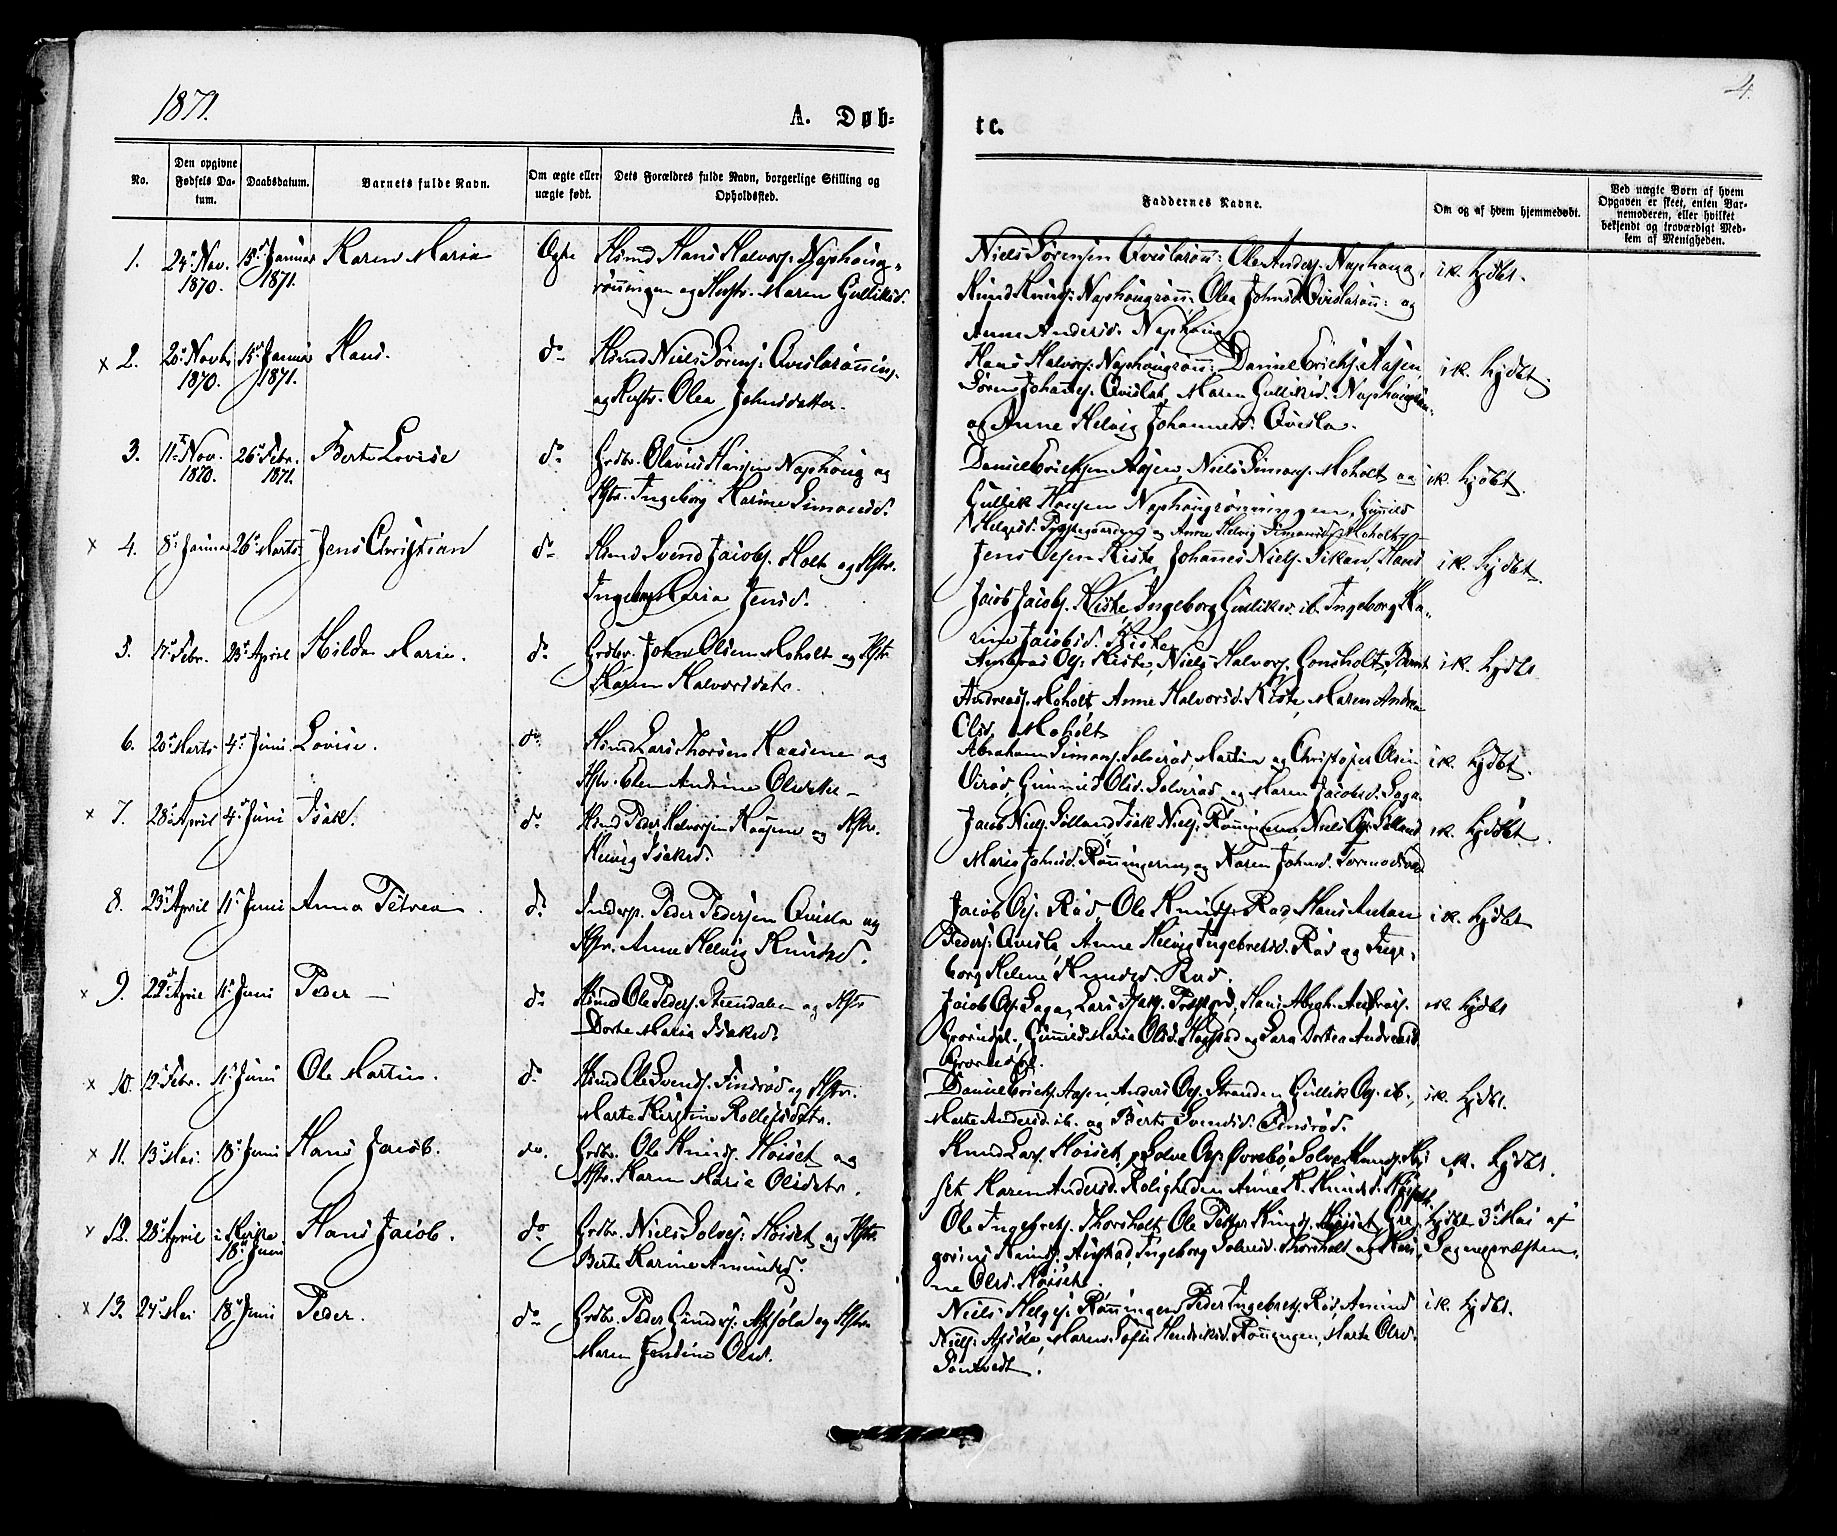 1871.
A. Døb-
te.
4.
No.
Den opgivne Fødsels Da-tum.
Daabsdatum.
Barnets fulde Navn.
Om ægte eller uægte født.
Dets Forældres fulde Navn, borgerlige Stilling og Opholdssted.
Faddernes Navne.
Om og af hvem hjemmedøbt.
Ved uægte Børn af hvem Opgaven er skeet, enten Bar-nemoderen, eller hvilket bekjendt og troværdigt Med-lem af Menigheden.
1. 24 Nov. 1870. 15 Januar 1871. Karen Maria Ægte Hsmd Hans Halvors. Naphoug-
rønningen og Hustr. Maren Gulliksd.
Niels Sørensen Qvislarønn: Ole Anders. Naphoug,
Knud Knuds. Naphougrønn: Olea Johnsd. Qvislarønn: og
Anne Andersd. Naphoug
i k. hjdbt.
x 2. 20 Novbr 1870. 15 Januar 1871. Hans. do Hsmd Niels Sørens. Qvislarønning.
og Hustr. Olea Johnsdatter.
Hans Halvors. Naphougrønn: Daniel Erichs. Aasen,
Søren Johannes. Qvisla, Maren Gulliksd. Naphougrøn.
og Anne Helvig Johannesd. Qvisla.
i k. hjdbt.
3. 11 Nov. 1870. 26 Febr. 1871. Berte Lovise do Grdbr. Olavus Hansen Naphoug og
Hstr. Ingeborg Karine Simonsd.
Daniel Erichsen Aasen, Niels Simons. Moholt og
Gullik Hansen Naphougrønningen, Gunnild
Helgesd. og Anne Helvig Simonsd. Moholt
i k. hjdbt.
x 4. 8 Januar 26 Marts Jens Christian do Hsmd Svend Jacobs. Holt og Hstr.
Ingeborg Maria Jensd.
Jens Olsen Kiste, Johannes Niels. Hans
Jacob Jacobs. Kiste, Ingeborg Gulliksd. ib. Ingeborg Ka-
rine Jacobsd. Kiste
i k. hjdbt.
5. 17 Febr. 23 April Hilda Marie. do Grdbr. John Olsen Moholt og Hstr
Karen Halvorsdatr.
Andreas Ols. Kiste, Niels Halvors. Gonsholt,
Andreas. Moholt, Anne Halvorsd. Kiste, Maren Andrea
Olsd. Moholt
i k. hjdbt.
6. 20 Marts 4 Juni Lovise. do Hsmd Lars Thorsen Kaasene og
Hstr. Elen Andrine Olsdatter
Abraham Simons. Solverød, Martin og Christopher Olsen
Virød, Gunnild Olsd. Solverød og Maren Jacobsd. Saga.
i k. hjdbt.
x 7. 28 April 4 Juni Isak. do Hsmd Peder Halvorsen Kaasene og Hstr.
Helvig Isaksd.
Jacob Niels. Solland Isak Niels. Rønningen, Niels Ols. Solland
Maria Johnsd. Rønningen og Karen Johnsd.
i k. hjdbt.
8. 23 April 11 Juni Anna Petrea do Inders. Peder Pedersen Qvisla og
Hstr. Anne Helvig Knudsd.
Jacob Ols. Rød, Ole Knuds. Rød, Hans Anton
Peders. Qvisla, Anne Helvig Ingebretsd. Rød og Inge-
borg Helene Knudsd. Rød.
i k. hjdbt
x 9. 29 April 11 Juni Peder do Hsmd Ole Peders. Strandalen og Hstr
Dorte Maria Isaksd.
Jacob Ols. Saga, Lars Hans Andreas.
Gunnild Maria Olsd. Hagstad og Sara Dortea Andreasd.
i k. hjdbt
x 10. 12 Febr. 11 Juni Ole Martin. do Hsmd Ole Svends. Findrød og Hstr.
Marte Kirstine Rollefsdatr.
Daniel Erichs. Aasen, Anders Ols. Stranden, Gullik Ols. ib.,
Marte Andersd. ib. og Berte Svendsd. Findrød.
i k. hjdbt.
x 11. 13 Mai 18 Juni Hans Jacob. do. Grdbr. Ole Knuds. Høiset og
Hstr. Karen Marie Olsdatr.
Knud Lars. Høiset, Solve Ols. Øvrebø, Solve Knuds. Høi
set Karen Andersd. Roligheden Anne K. Knudsd. Høiset.
i k. hjdbt.
x 12. 28 April i Kirke 18 Juni Hans Jacob. do Grdbr. Niels Solves. Høiset og Hstr
Berte Karine Amundsd.
Ole Ingebrets. Thorsholt, Ole Petter Knuds. Høiset, Gre-
gorius Knuds. Aigstad, Ingeborg Solvesd. Thorsholt og Kari-
ne Olsd. Høiset.
hjdbt 3 Mai af
Sognepræsten.
x 13. 24 Mai 18 Juni Peder. do Grdbr. Peder Gunders. og Hstr
Maren Jensine Olsd.
Niels Helges. Rønningen, Peder Ingebrets. Rød, Amund
Niels. Maren Sofie Henriksd. Rønningen, Marte Olsd.
Søntvedt.
i k. hjdbt.